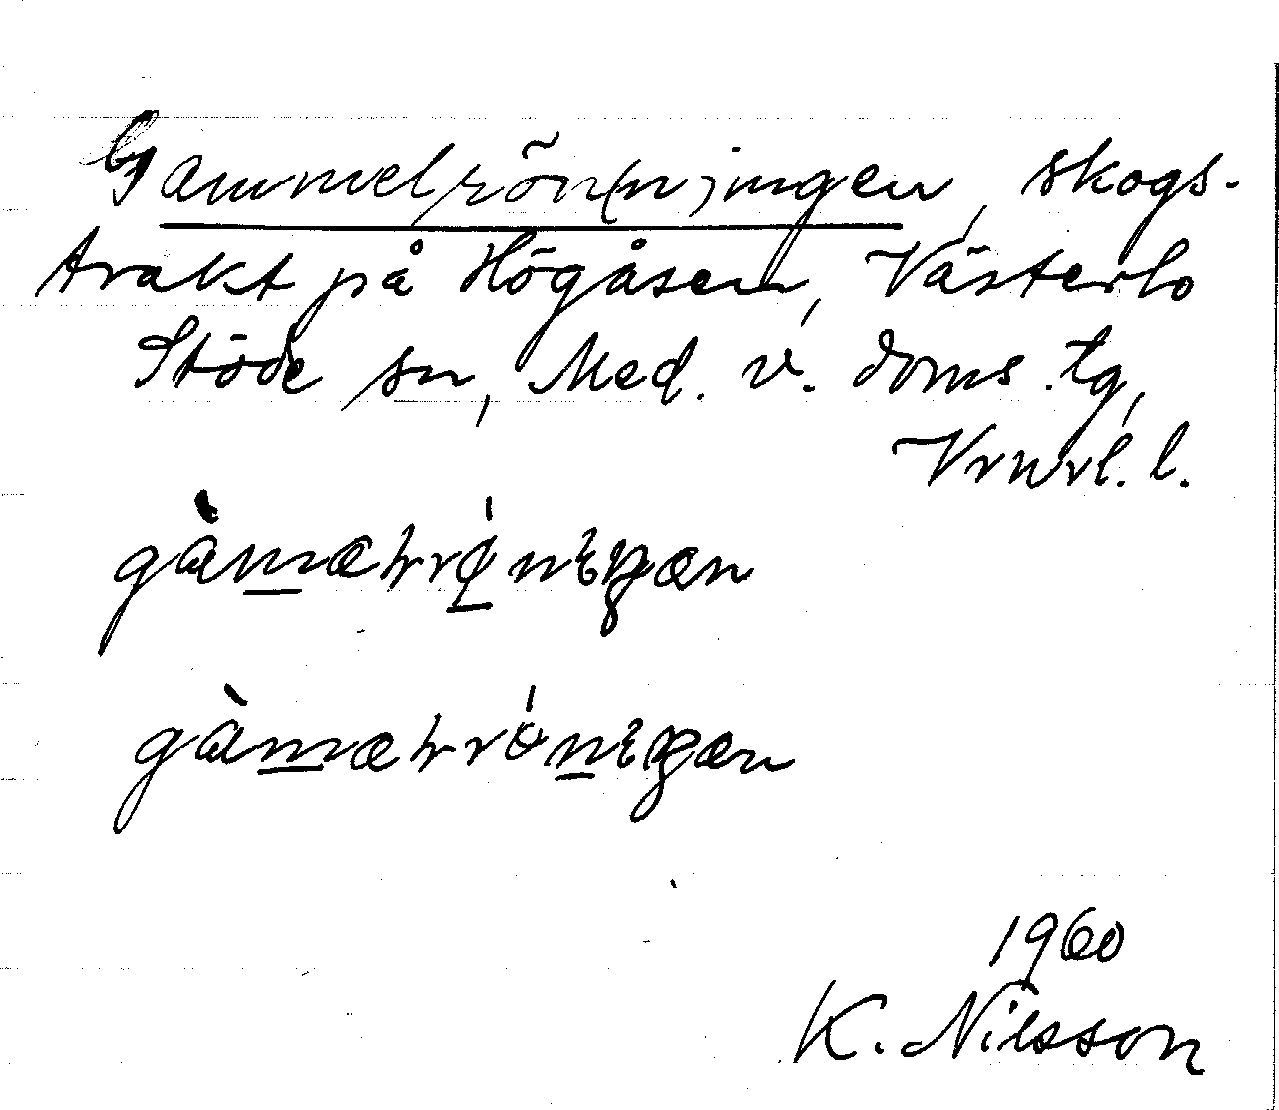 Gammelrön(n)ingen, skogs-
trakt på Högåsen, Västerlo
Stöde sn, Med. v. doms. tg,
Vrnrl. l.
gàmæḷrǿnıŋæn
gàmæḷrɵ́nıŋæn
1960
K. Nilsson